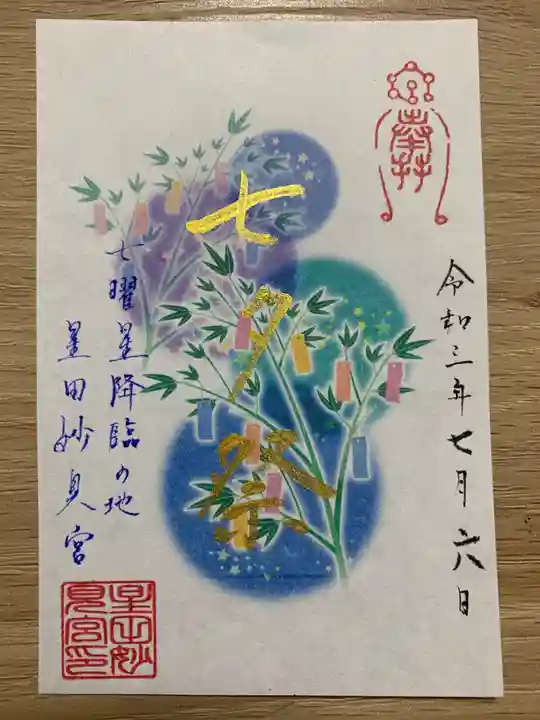 令和三年七月六日
七夕祭
七曜星降臨の地
星田妙見宮
星田妙見宮印